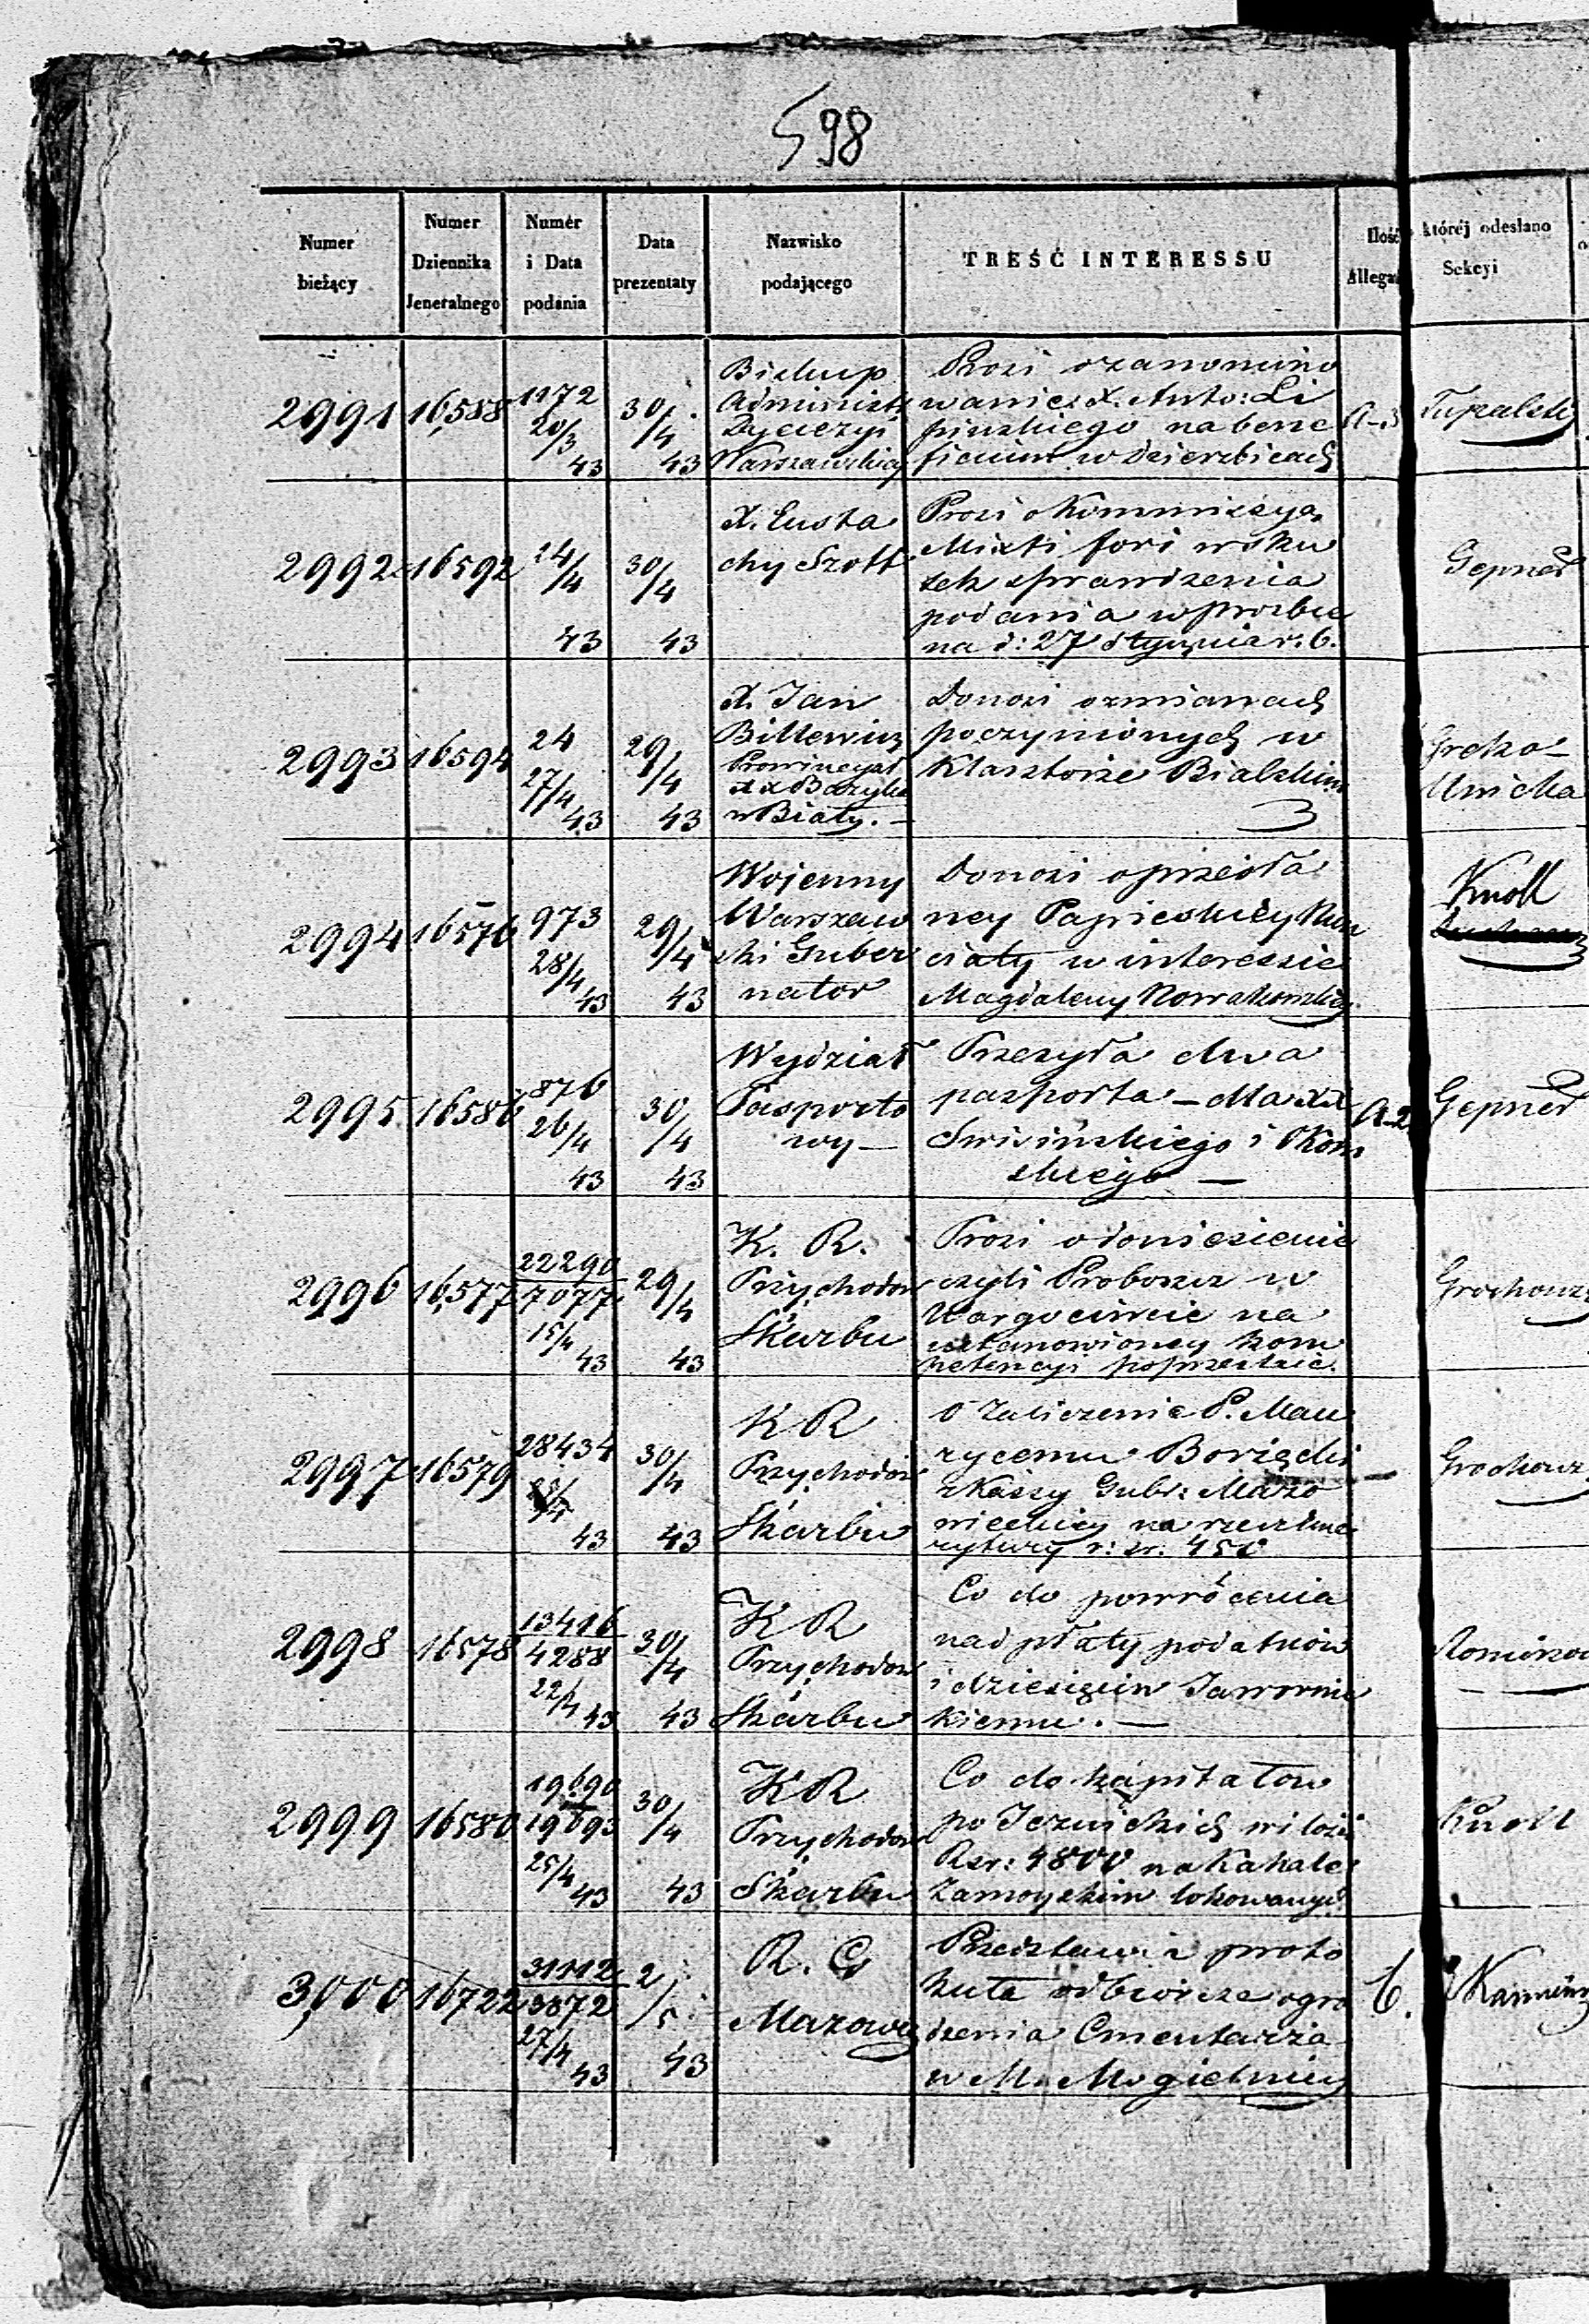 598
Numer bieżący
Numer Dziennika Jeneralnego
Numer i Data podania
Data prezentaty
Nazwisko podającego
TREŚĆ INTERESSU
Ilość Allega
której odesłano Sekcyi
2991 16,588 1172 20/3 43 30/4 43
Biskup
Administr
Dyecezyi
Warszawskiej
Prosi o zanomino
wanie X. Anto: Li
pinskiego na bene
ficium w Dzierzbicach
A-3
Tupalski
2992 16592 24/4 43 30/4 43
X. Eusta
chy Szott
Prosi o Kommissyą
Mixti fori w sku
tek sprawdzenia
podania w prozbie
na d: 27 Stycznia r. b.
Gepner
2993 16594 24 27/4 43 29/4 43
X. Jan
Bittewicz
Prowincyał
XX Bazyl
w Biały. —
Donosi o zmianach
poczynionych w
Klasztorze Bialskim
Grecko-
Unicka
2994 16576 973 28/4 43 29/4 43
Wojenny
Warszaw
ski Guber
nator
Donosi o przesła
ney Papieskiey Nun
ciaty w interessie
Magdaleny Nowakowskiey
Knoll
2995 16586 876 26/4 43 30/4 43
Wydział
Pasporto
wy —
Przesyła dwa
paszporta — dla XX
Swisińskiego i
skiego —
A-2
Gepner
2996 16,577 22290 7077 15/4 43 29/4 43
K. R.
Przychodow
Skarbu
Prosi o doniesienie
czyli Proboszcz w
Wargocinie na
ustanowioney kom
petencyi poprzestaie.
Grochowz
2997 16579 28434 43 30/4 43
K R
Przychodow
Skarbu
O zaliczenie P. Mau
rycemu Borzęcki
z Kassy Gubr: Mazo
wieckiey na rzecz Eme
rytury r: sr. 450
Grochowz
2998 16578 13416 4288 22/4 43 30/4 43
K R
Przychodow
Skarbu
Co do powrócenia
nadpłaty podatków
i dziesięcin Jawornic
kiemu. —
2999 16580 19690 19693 25/4 43 30/4 43
K R
Przychodow
Skarbu
Co do kapitałow
po Jezuickich w ilośi
Rsr: 4800 na Kahale
Zamoyskim lokowanych
Knoll
3,000 16722 31112 3872 27/4 43 2/5 43
R. G
Mazowiec
Przedstawia proto
kuła odbiorcze ogro
dzenia Cmentarza
w M. Mogielnicy
6.
Kamień